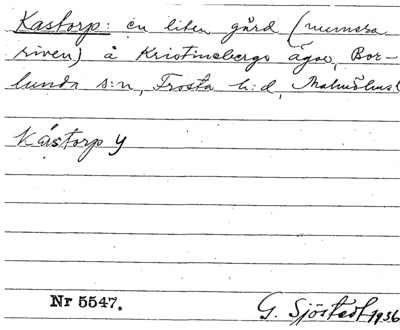 Kastorp: en liten gård (numera
riven) å Kristinebergs ägor, Bor-
lunda s:n, Frosta h:d, Malmöhusl
Kástorp y
Nr 5547.
G. Sjöstedt 1936